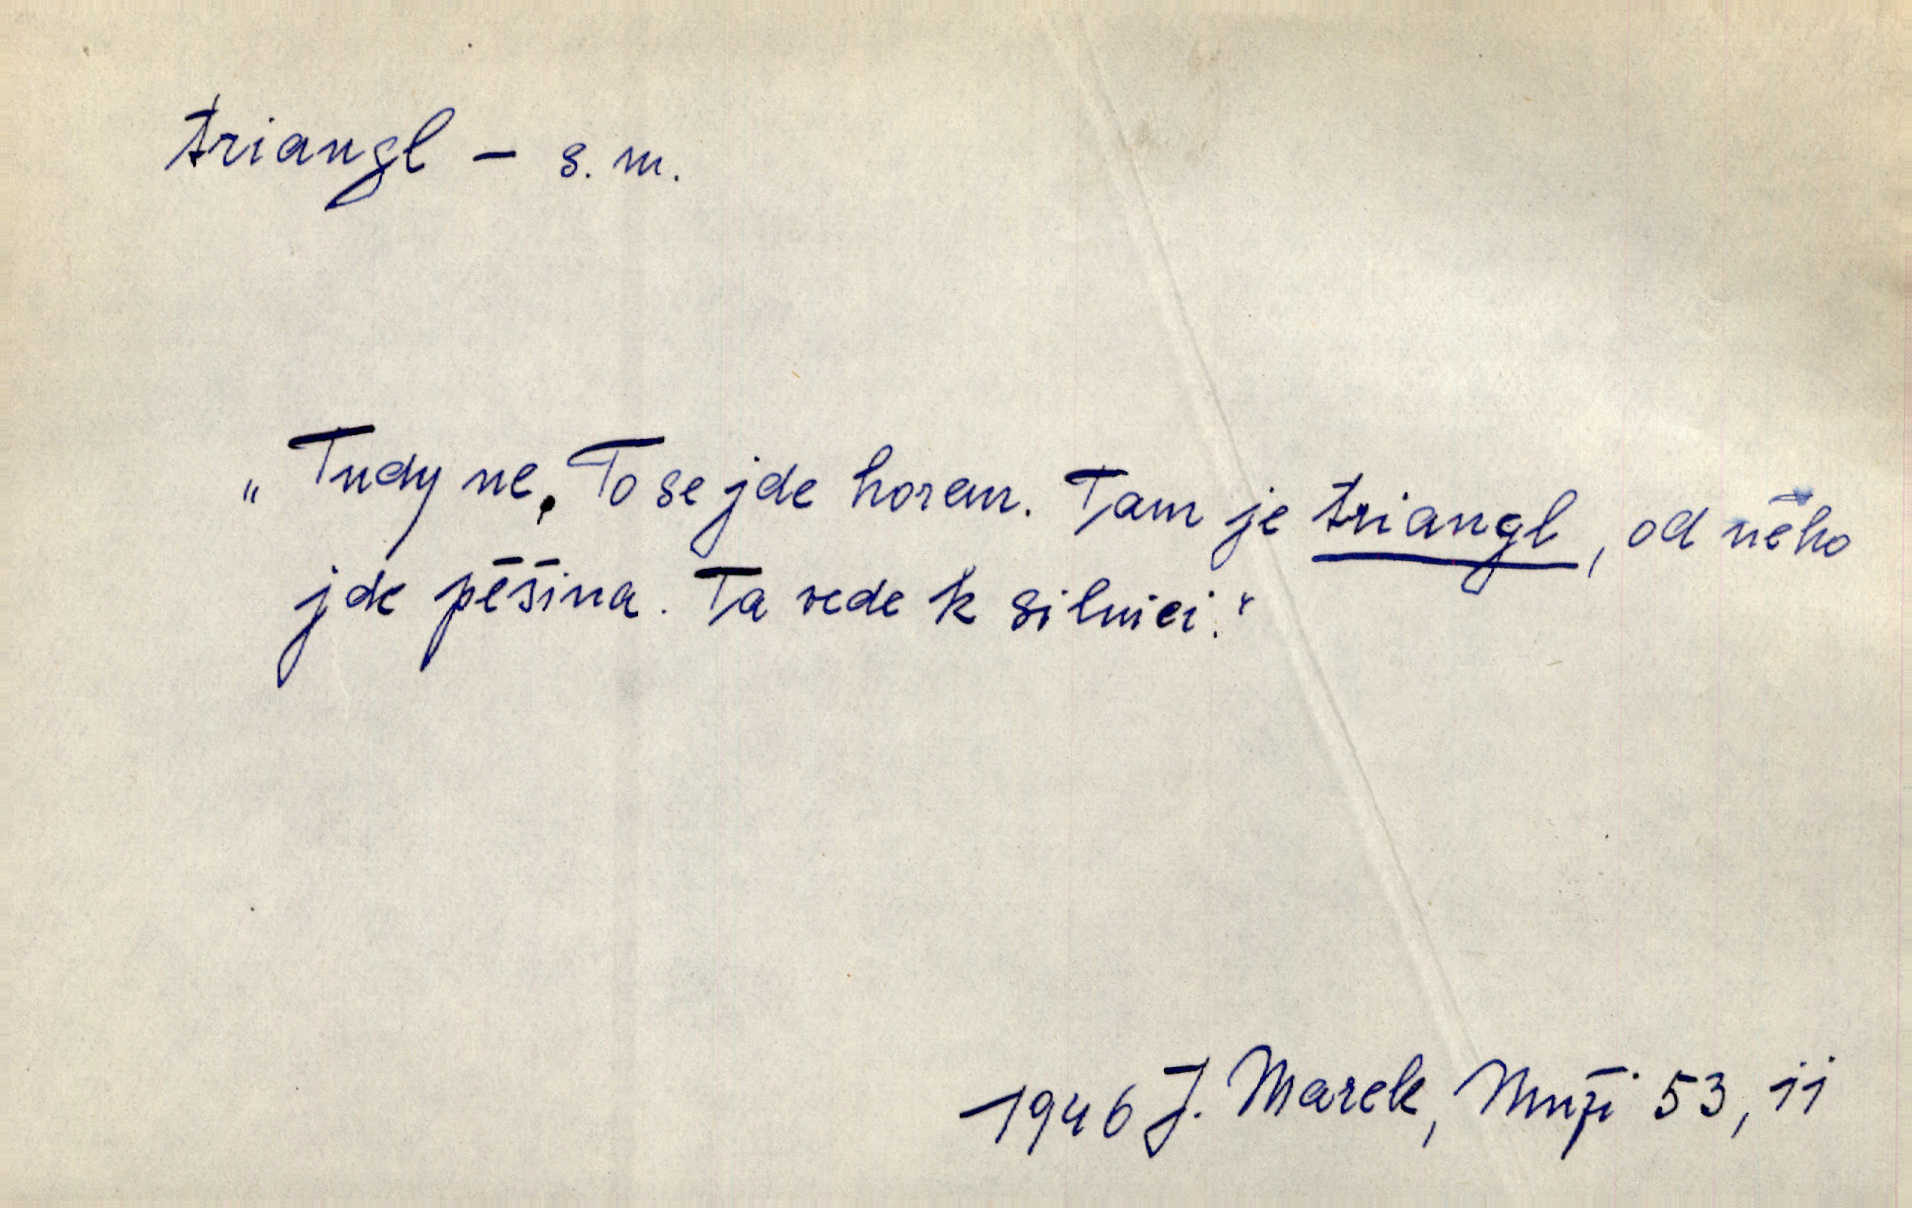 triangl – s. m.
„Tudy ne. To se jde horem. Tam je triangl, od něho
jde pěšina. Ta vede k silnici.“
1946 J. Marek, Muži 53, ii